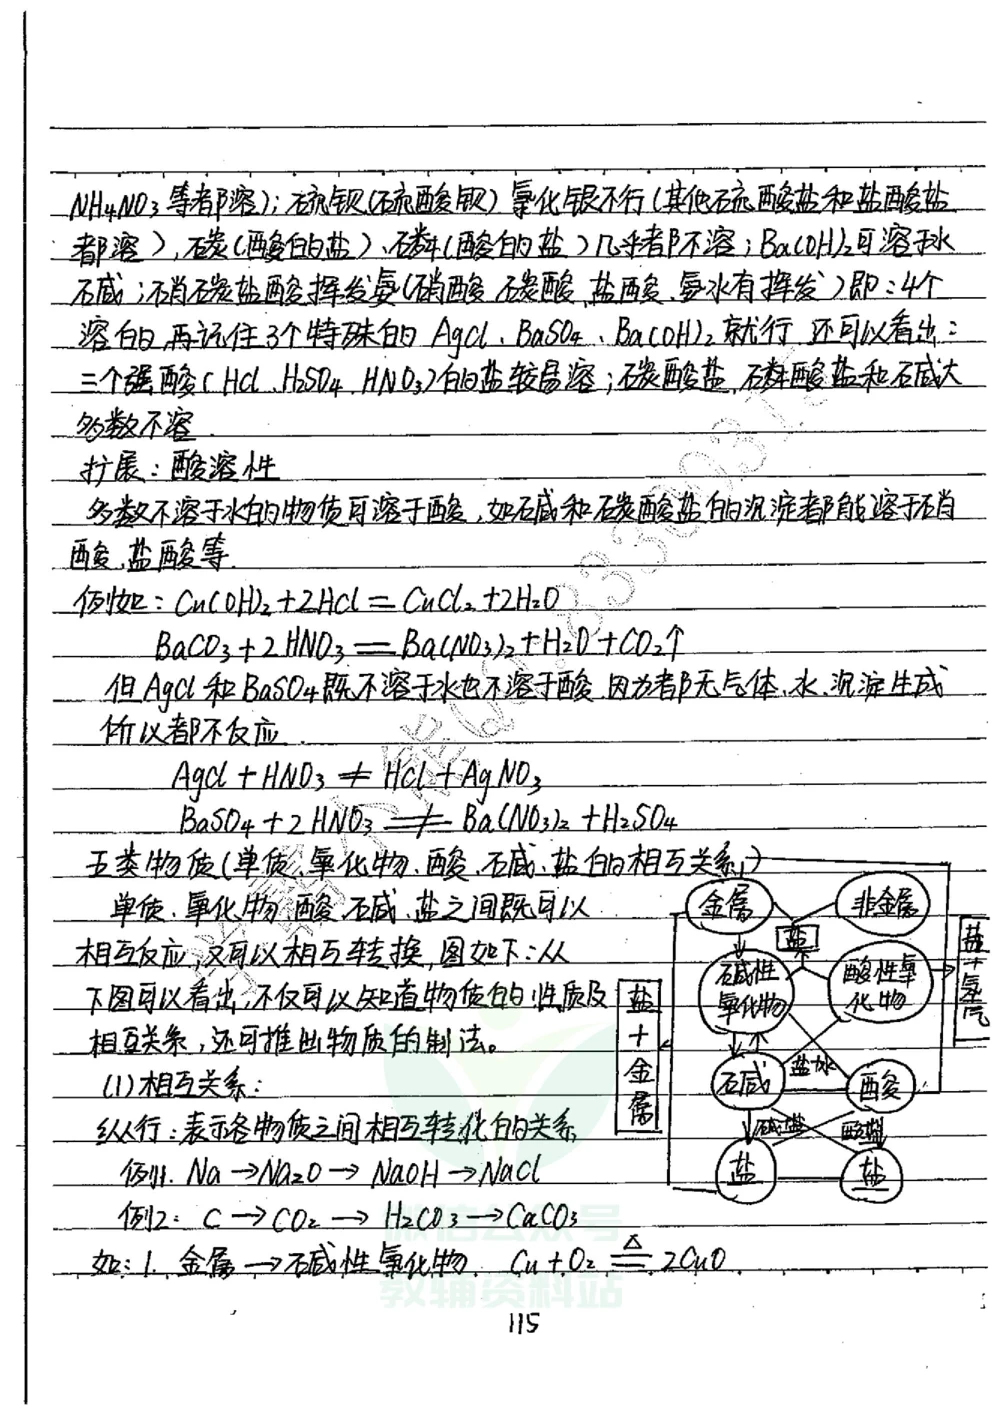 NH₄NO₃等都溶);硫钡(硫酸钡)氯化银不行(其他硫酸盐和盐酸盐
都溶),碳(酸的盐)、磷(酸的盐)几乎都不溶;Ba(OH)₂可溶于水
碱;硝碳盐酸挥发氨(硝酸、碳酸、盐酸、氨水有挥发)即:4个
溶的,再记住3个特殊的 AgCl、BaSO₄、Ba(OH)₂就行.还可以看出:
三个强酸(HCl、H₂SO₄、HNO₃)的盐较易溶;碳酸盐,磷酸盐和碱大
多数不溶.
扩展:酸溶性
多数不溶于水的物质可溶于酸,如碱和碳酸盐的沉淀都能溶于硝
酸、盐酸等.
例如:Cu(OH)₂+2HCl=CuCl₂+2H₂O
BaCO₃+2HNO₃=Ba(NO₃)₂+H₂O+CO₂↑
但AgCl和BaSO₄既不溶于水也不溶于酸,因为都无气体、水、沉淀生成
所以都不反应.
AgCl+HNO₃≠HCl+AgNO₃
BaSO₄+2HNO₃≠Ba(NO₃)₂+H₂SO₄
五类物质(单质、氧化物、酸、碱、盐的相互关系)
单质、氧化物、酸、碱、盐之间既可以
相互反应,又可以相互转换,图如下:从
下图可以看出,不仅可以知道物质的性质及
相互关系,还可推出物质的制法。
(1)相互关系:
纵行:表示各物质之间相互转化的关系
例1. Na→Na₂O→NaOH→NaCl
例2: C→CO₂→H₂CO₃→CaCO₃
如:1.金属→碱性氧化物 Cu+O₂=△=2CuO
金属
非金属
盐
碱性
氧化物
酸性氧
化物
盐+氢气
盐+金属
碱
盐水
酸
碱盐
酸盐
盐
盐
微信公众号
教辅资料站
115